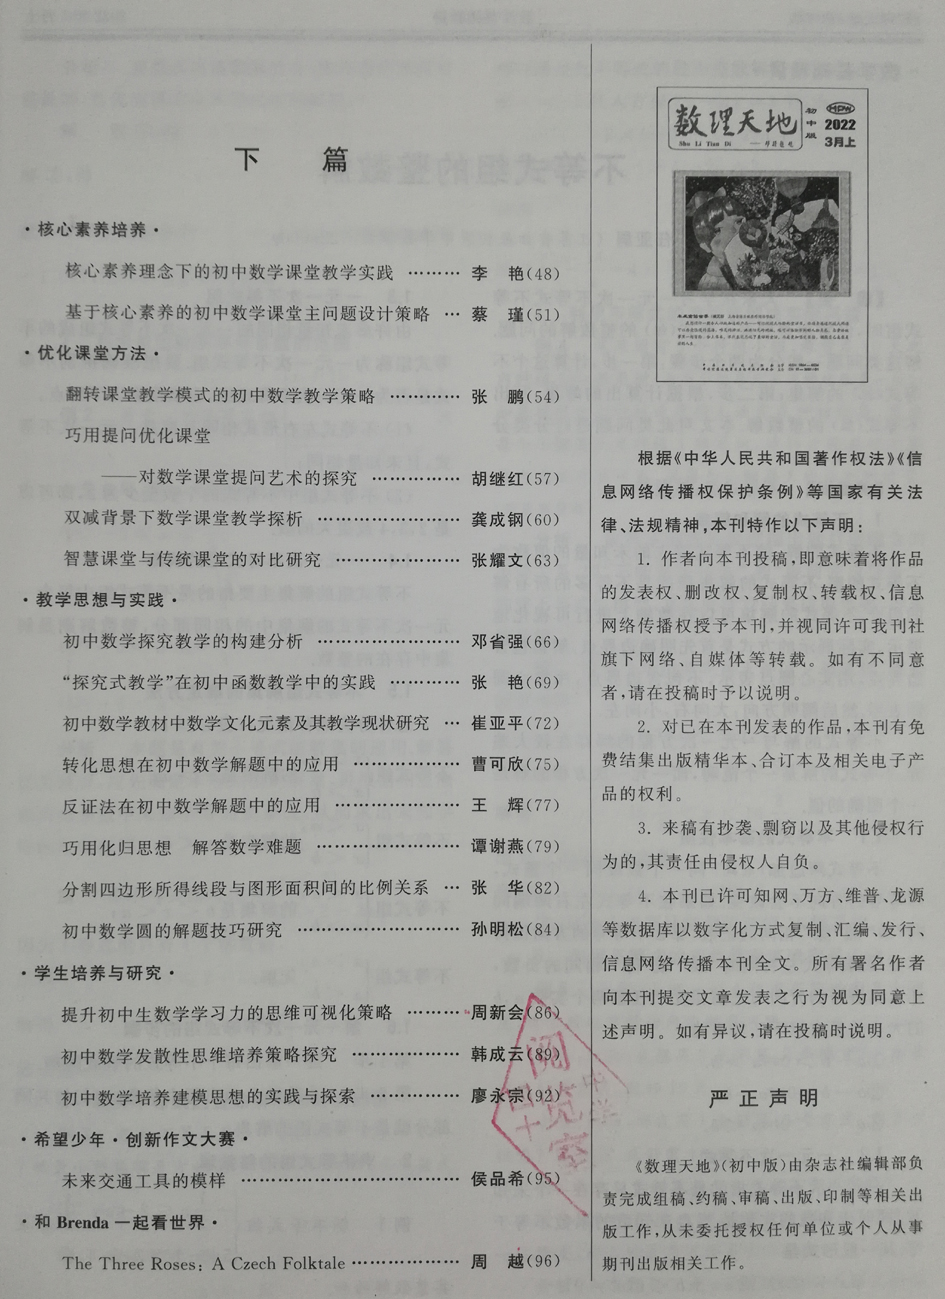 下 篇
·核心素养培养·
核心素养理念下的初中数学课堂教学实践 ……… 李 艳(48)
基于核心素养的初中数学课堂主问题设计策略 … 蔡 瑾(51)
·优化课堂方法·
翻转课堂教学模式的初中数学教学策略 ………… 张 鹏(54)
巧用提问优化课堂
——对数学课堂提问艺术的探究 …………… 胡继红(57)
双减背景下数学课堂教学探析 ………………… 龚成钢(60)
智慧课堂与传统课堂的对比研究 ……………… 张耀文(63)
·教学思想与实践·
初中数学探究教学的构建分析 ………………… 邓省强(66)
“探究式教学”在初中函数教学中的实践 ………… 张 艳(69)
初中数学教材中数学文化元素及其教学现状研究 … 崔亚平(72)
转化思想在初中数学解题中的应用 …………… 曹可欣(75)
反证法在初中数学解题中的应用 ……………… 王 辉(77)
巧用化归思想 解答数学难题 ………………… 谭谢燕(79)
分割四边形所得线段与图形面积间的比例关系 … 张 华(82)
初中数学圆的解题技巧研究 …………………… 孙明松(84)
·学生培养与研究·
提升初中生数学学习力的思维可视化策略 ……… 周新会(86)
初中数学发散性思维培养策略探究 …………… 韩成云(89)
初中数学培养建模思想的实践与探索 ………… 廖永宗(92)
·希望少年·创新作文大赛·
未来交通工具的模样 ………………………… 侯品希(95)
·和 Brenda 一起看世界·
The Three Roses: A Czech Folktale …………… 周 越(96)
阅览室
数理天地
Shu Li Tian Di
初中版
HPW
2022
3月上
根据《中华人民共和国著作权法》《信
息网络传播权保护条例》等国家有关法
律、法规精神,本刊特作以下声明:
1. 作者向本刊投稿,即意味着将作品
的发表权、删改权、复制权、转载权、信息
网络传播权授予本刊,并视同许可我刊社
旗下网络、自媒体等转载。如有不同意
者,请在投稿时予以说明。
2. 对已在本刊发表的作品,本刊有免
费结集出版精华本、合订本及相关电子产
品的权利。
3. 来稿有抄袭、剽窃以及其他侵权行
为的,其责任由侵权人自负。
4. 本刊已许可知网、万方、维普、龙源
等数据库以数字化方式复制、汇编、发行、
信息网络传播本刊全文。所有署名作者
向本刊提交文章发表之行为视为同意上
述声明。如有异议,请在投稿时说明。
严正声明
《数理天地》(初中版)由杂志社编辑部负
责完成组稿、约稿、审稿、出版、印制等相关出
版工作,从未委托授权任何单位或个人从事
期刊出版相关工作。